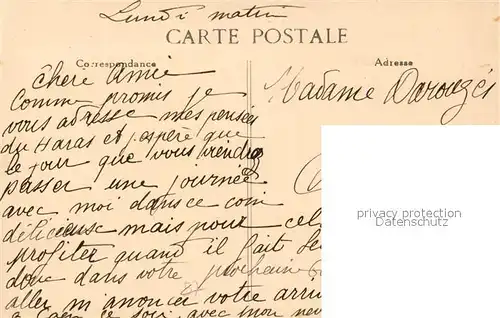 Lundi matin
CARTE POSTALE
Correspondance
Adresse
chère Amie
Comme promis je
vous adresse mes pensées
du Haras et j'espère que
le jour que vous viendrez
passer une journée
avec moi dans ce coin
délicieux mais pour cel
profiter quand il fait be
donc dans votre prochaine
aller m'anoncer votre arriv
ce soir, avec mon nev
Madame Darouzès
privacy protection
Datenschutz